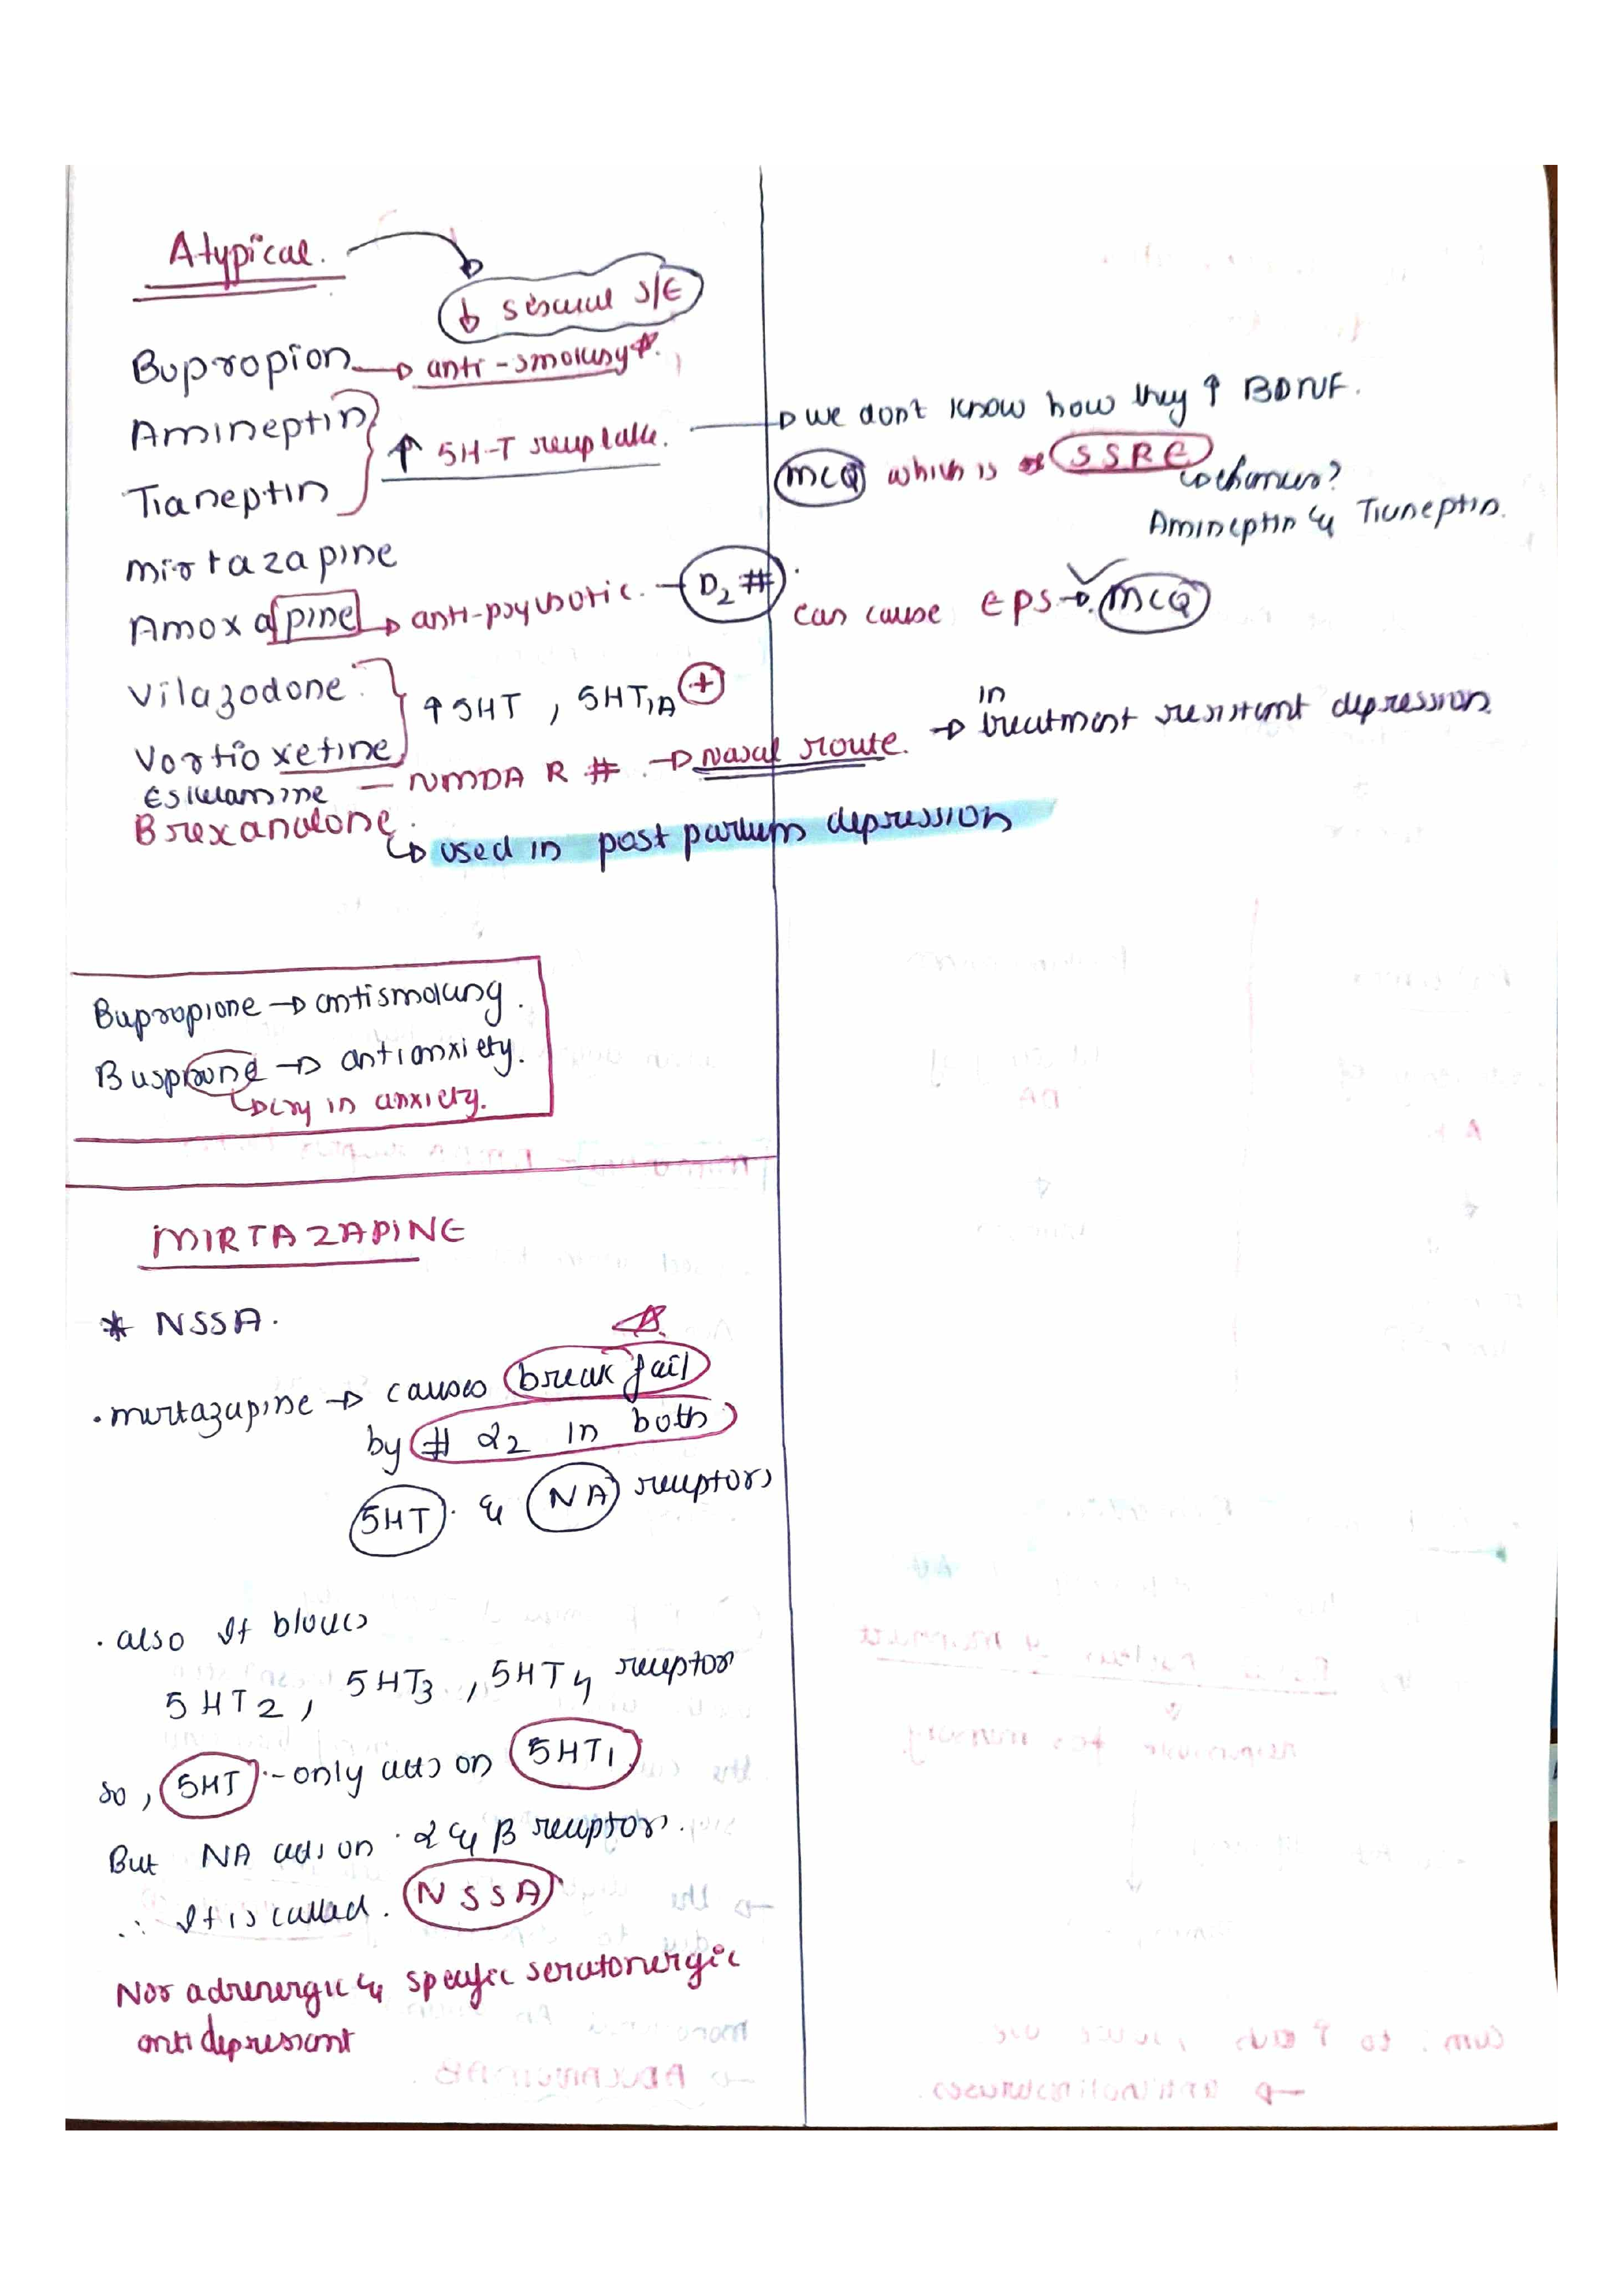 Atypical.
↓ sexual S/E
Bupropion → anti-smoking*.
Amineptin
Tianeptin
↑ 5H-T reuptake. → we don't know how they ↑ BDNF.
MCQ which is SSRE
enhancer?
Amineptin & Tianeptin.
Mirtazapine
Amoxapine → anti-psychotic. → D2 #. can cause EPS → MCQ
Vilazodone
Vortioxetine
↑ 5HT, 5HT1A +
Esketamine — NMDA R # → Nasal route. → in treatment resistant depression.
Brexanolone.
↳ used in post partum depression
Bupropione → antismoking.
Buspirone → antianxiety.
↳ cry in anxiety.
MIRTAZAPINE
* NSSA.
• mirtazapine → causes break fail
by # α2 in both
5HT. & NA receptors
• also It blocks
5HT2, 5HT3, 5HT4 receptor
so, 5HT - only acts on 5HT1.
But NA acts on α & β receptors.
∴ It is called. NSSA
Nor adrenergic & specific seratonergic
anti depressant